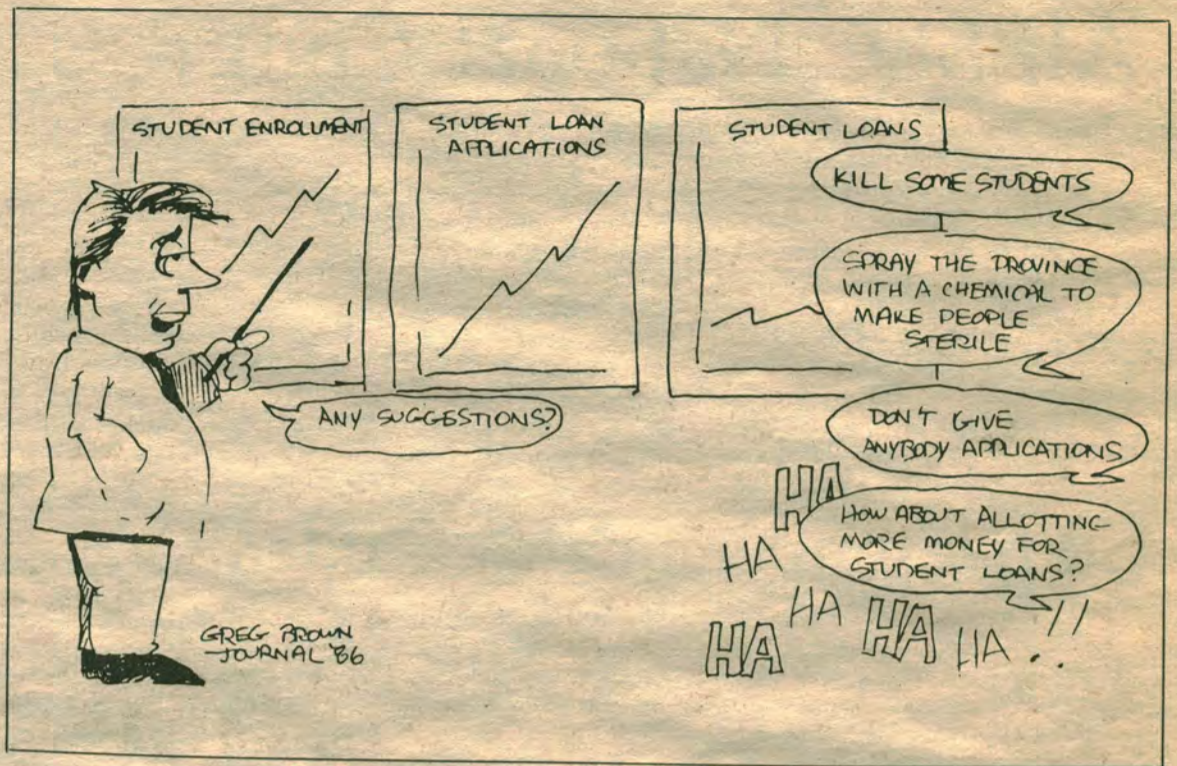 STUDENT ENROLLMENT
STUDENT LOAN
APPLICATIONS
STUDENT LOANS
ANY SUGGESTIONS?
KILL SOME STUDENTS
SPRAY THE PROVINCE
WITH A CHEMICAL TO
MAKE PEOPLE
STERILE
DON'T GIVE
ANYBODY APPLICATIONS
HOW ABOUT ALLOTTING
MORE MONEY FOR
STUDENT LOANS?
HA
HA
HA
HA HA HA..!!
GREG BROWN
JOURNAL '86